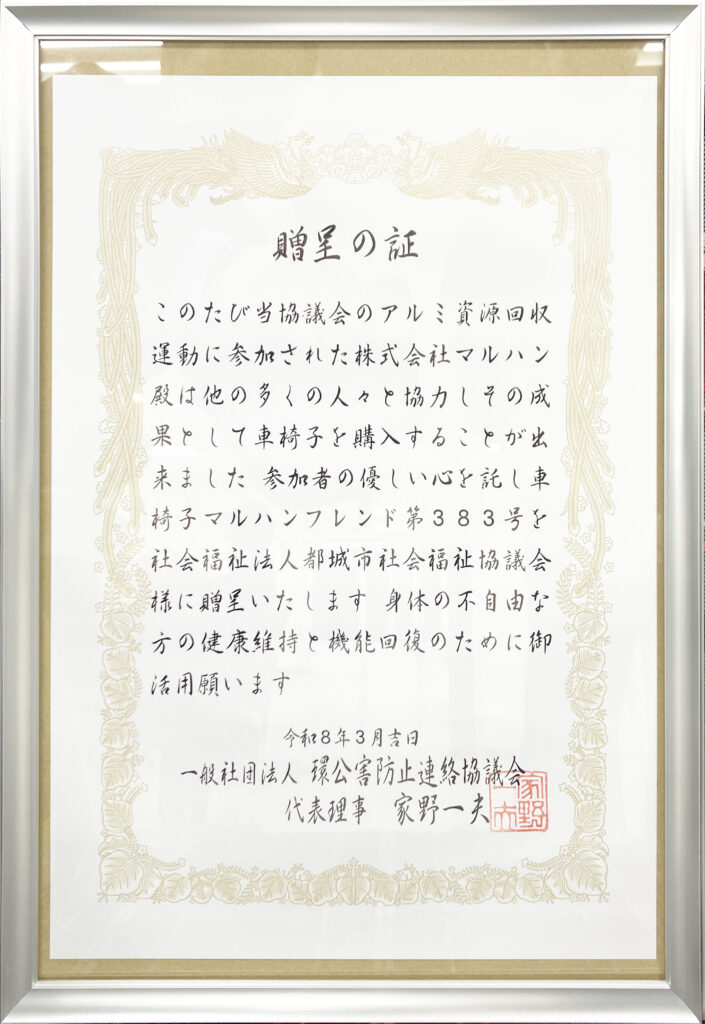 贈呈の証
このたび当協議会のアルミ資源回収
運動に参加された株式会社マルハン
殿は他の多くの人々と協力しその成
果として車椅子を購入することが出
来ました 参加者の優しい心を託し車
椅子マルハンフレンド第383号を
社会福祉法人都城市社会福祉協議会
様に贈呈いたします 身体の不自由な
方の健康維持と機能回復のために御
活用願います
令和8年3月吉日
一般社団法人 環公害防止連絡協議会
代表理事 家野一夫
家野一夫